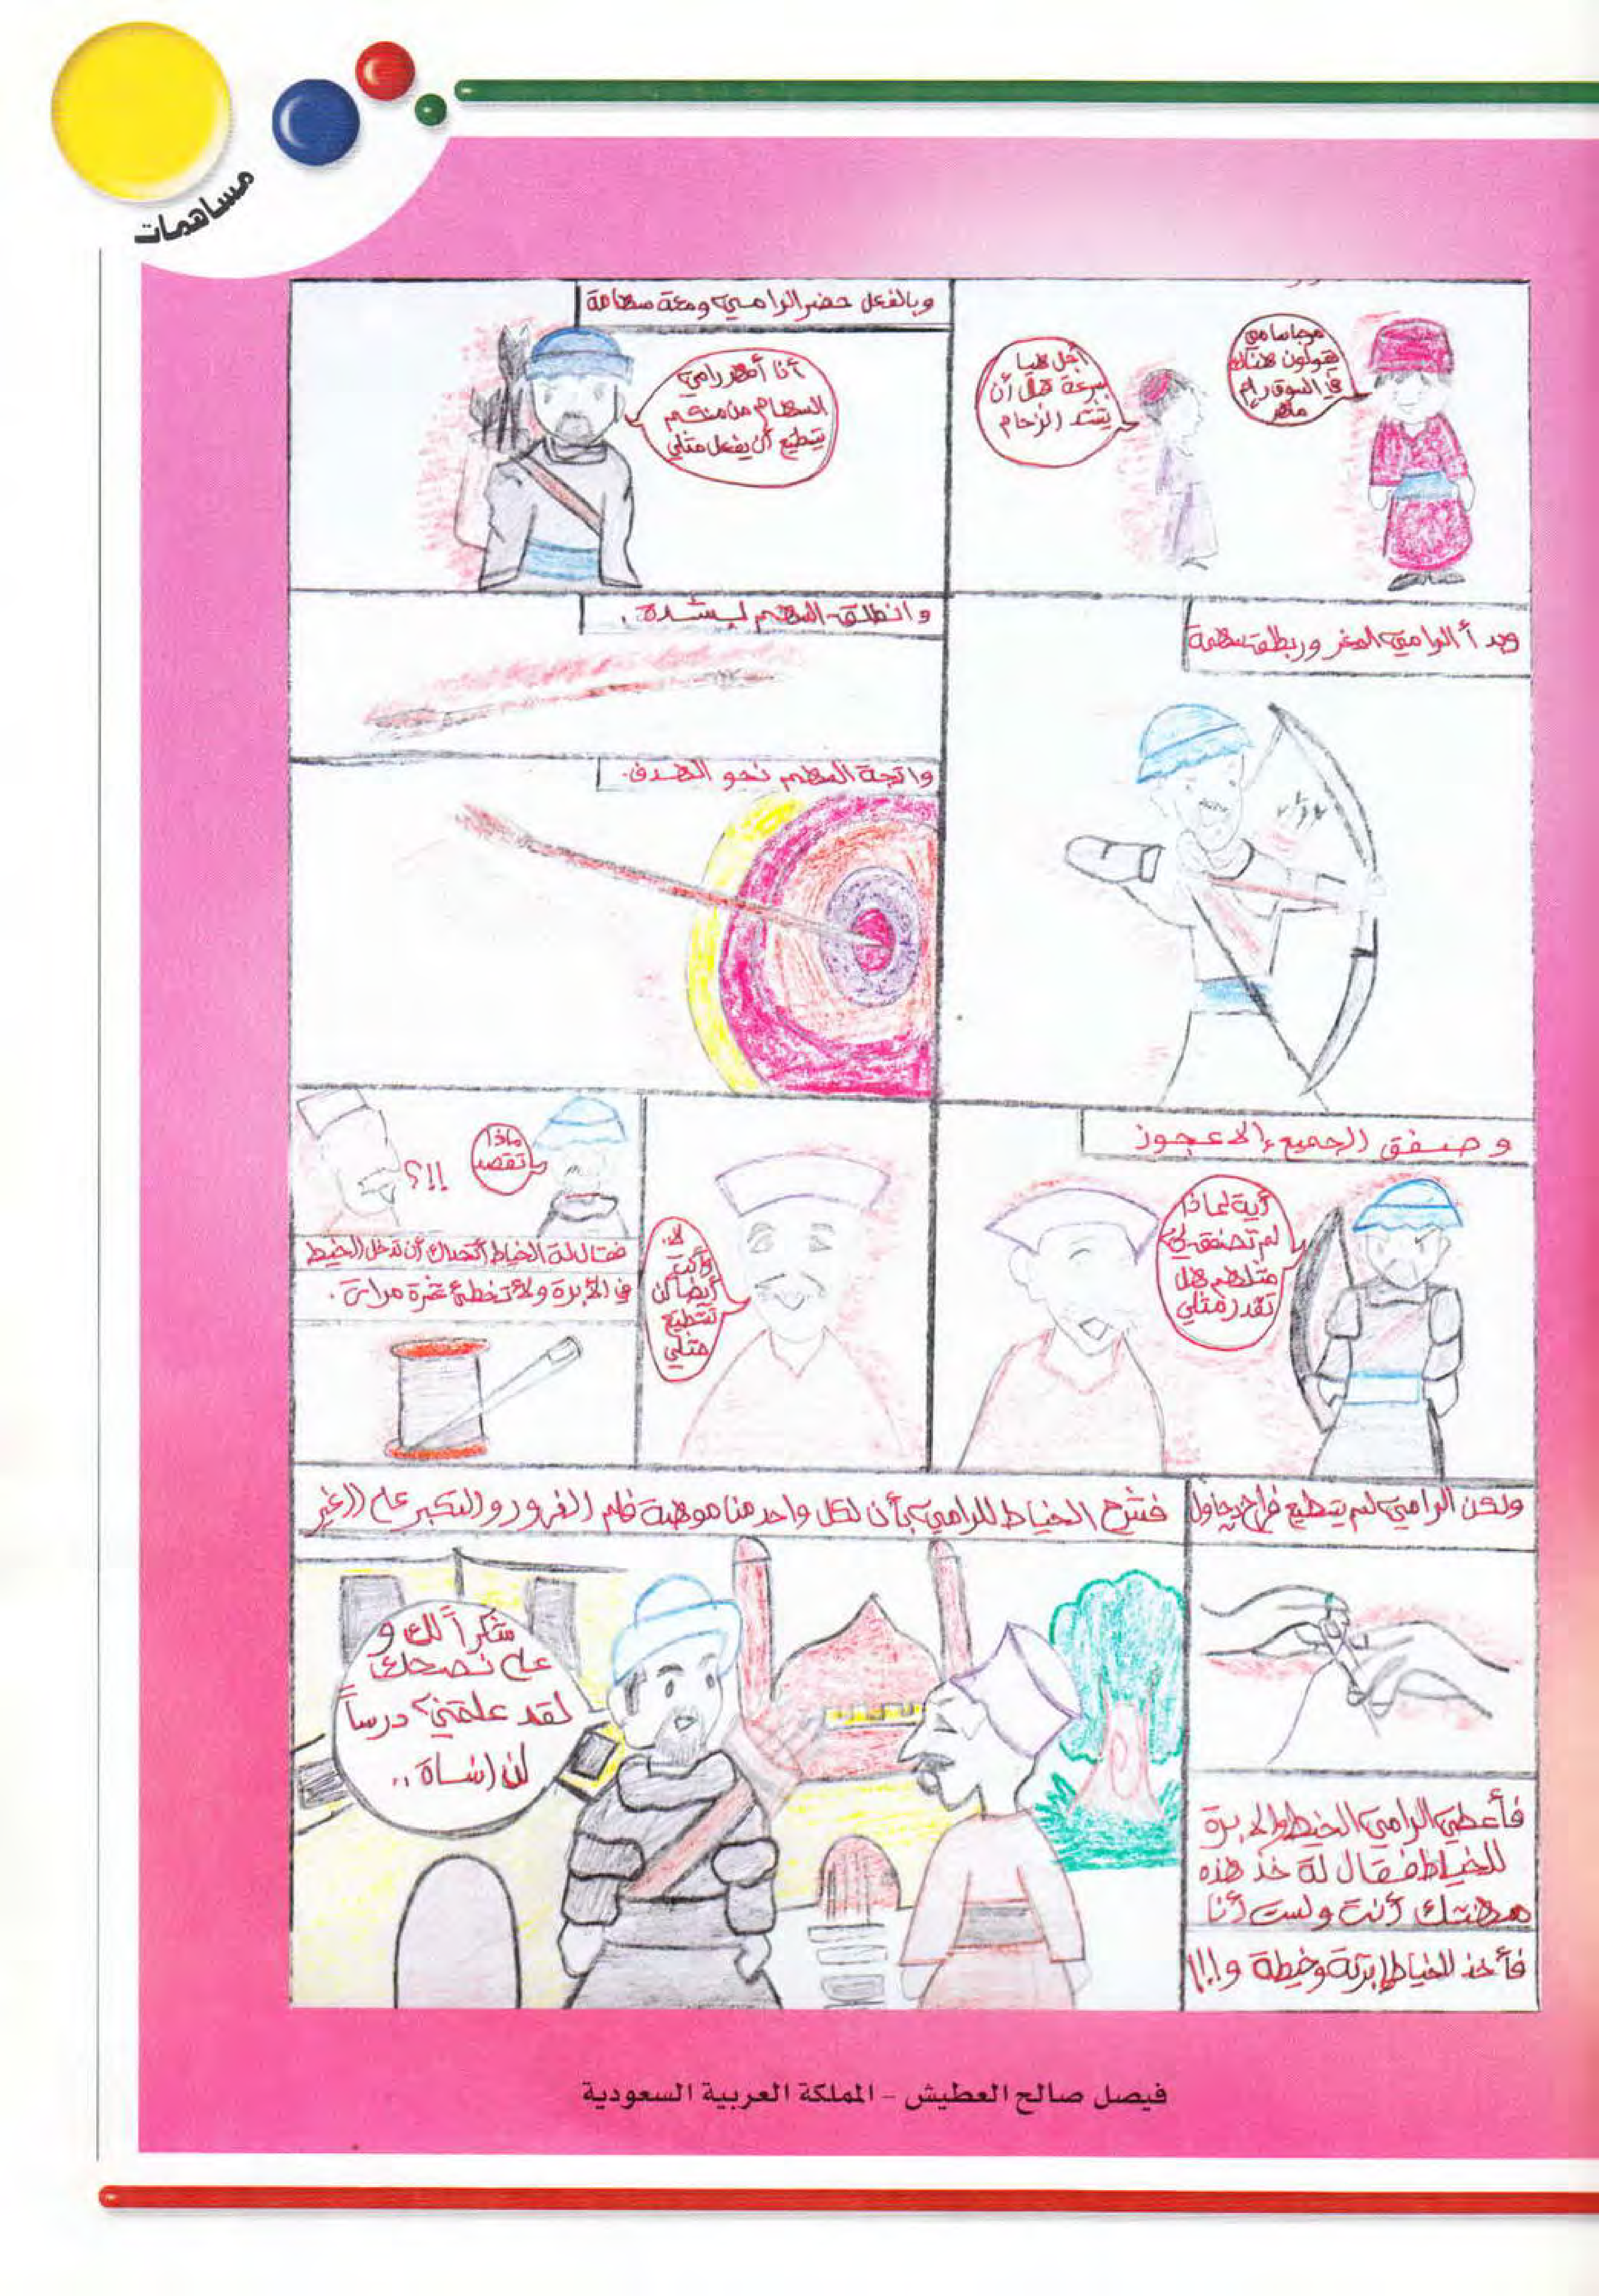 مساهمات
مرحبا سامي
يقولون هناك
في السوق رام
ماهر
أجل هيا
بسرعة قبل أن
يشتد الزحام
وبالفعل حضر الرامي ومعة سهامة
أنا أمهر رامي
السهام من منكم
يستطيع أن يفعل مثلي
وبدأ الرامي الحفر وربط سهمة
وانطلق السهم بشدة .
واتجة السهم نحو الهدف.
وصفق الجميع إلا عجوز
أية لماذا
لم تصفق لي
مثلهم هل
تقدر مثلي
لا..
وأنت
أيضا لن
تستطيع
مثلي
ماذا
تقصد
؟!!
فقال لة الخياط أتحداك أن تدخل الخيط
في الأبرة ولا تخطئ عشرة مرات .
ولكن الرامي لم يستطيع فراح يحاول
فأعطى الرامي الخيط والابرة
للخياط فقال لة خذ هذه
مهنتك أنت ولست أنا
فأخذ الخياط إبرتة وخيطة و!!!
فشرح الخياط للرامي بأن لكل واحد منا موهبة فلم الغرور والتكبر على الغير
شكراً لك و
على نصحك
لقد علمتني درساً
لن انساة ..
فيصل صالح العطيش - المملكة العربية السعودية